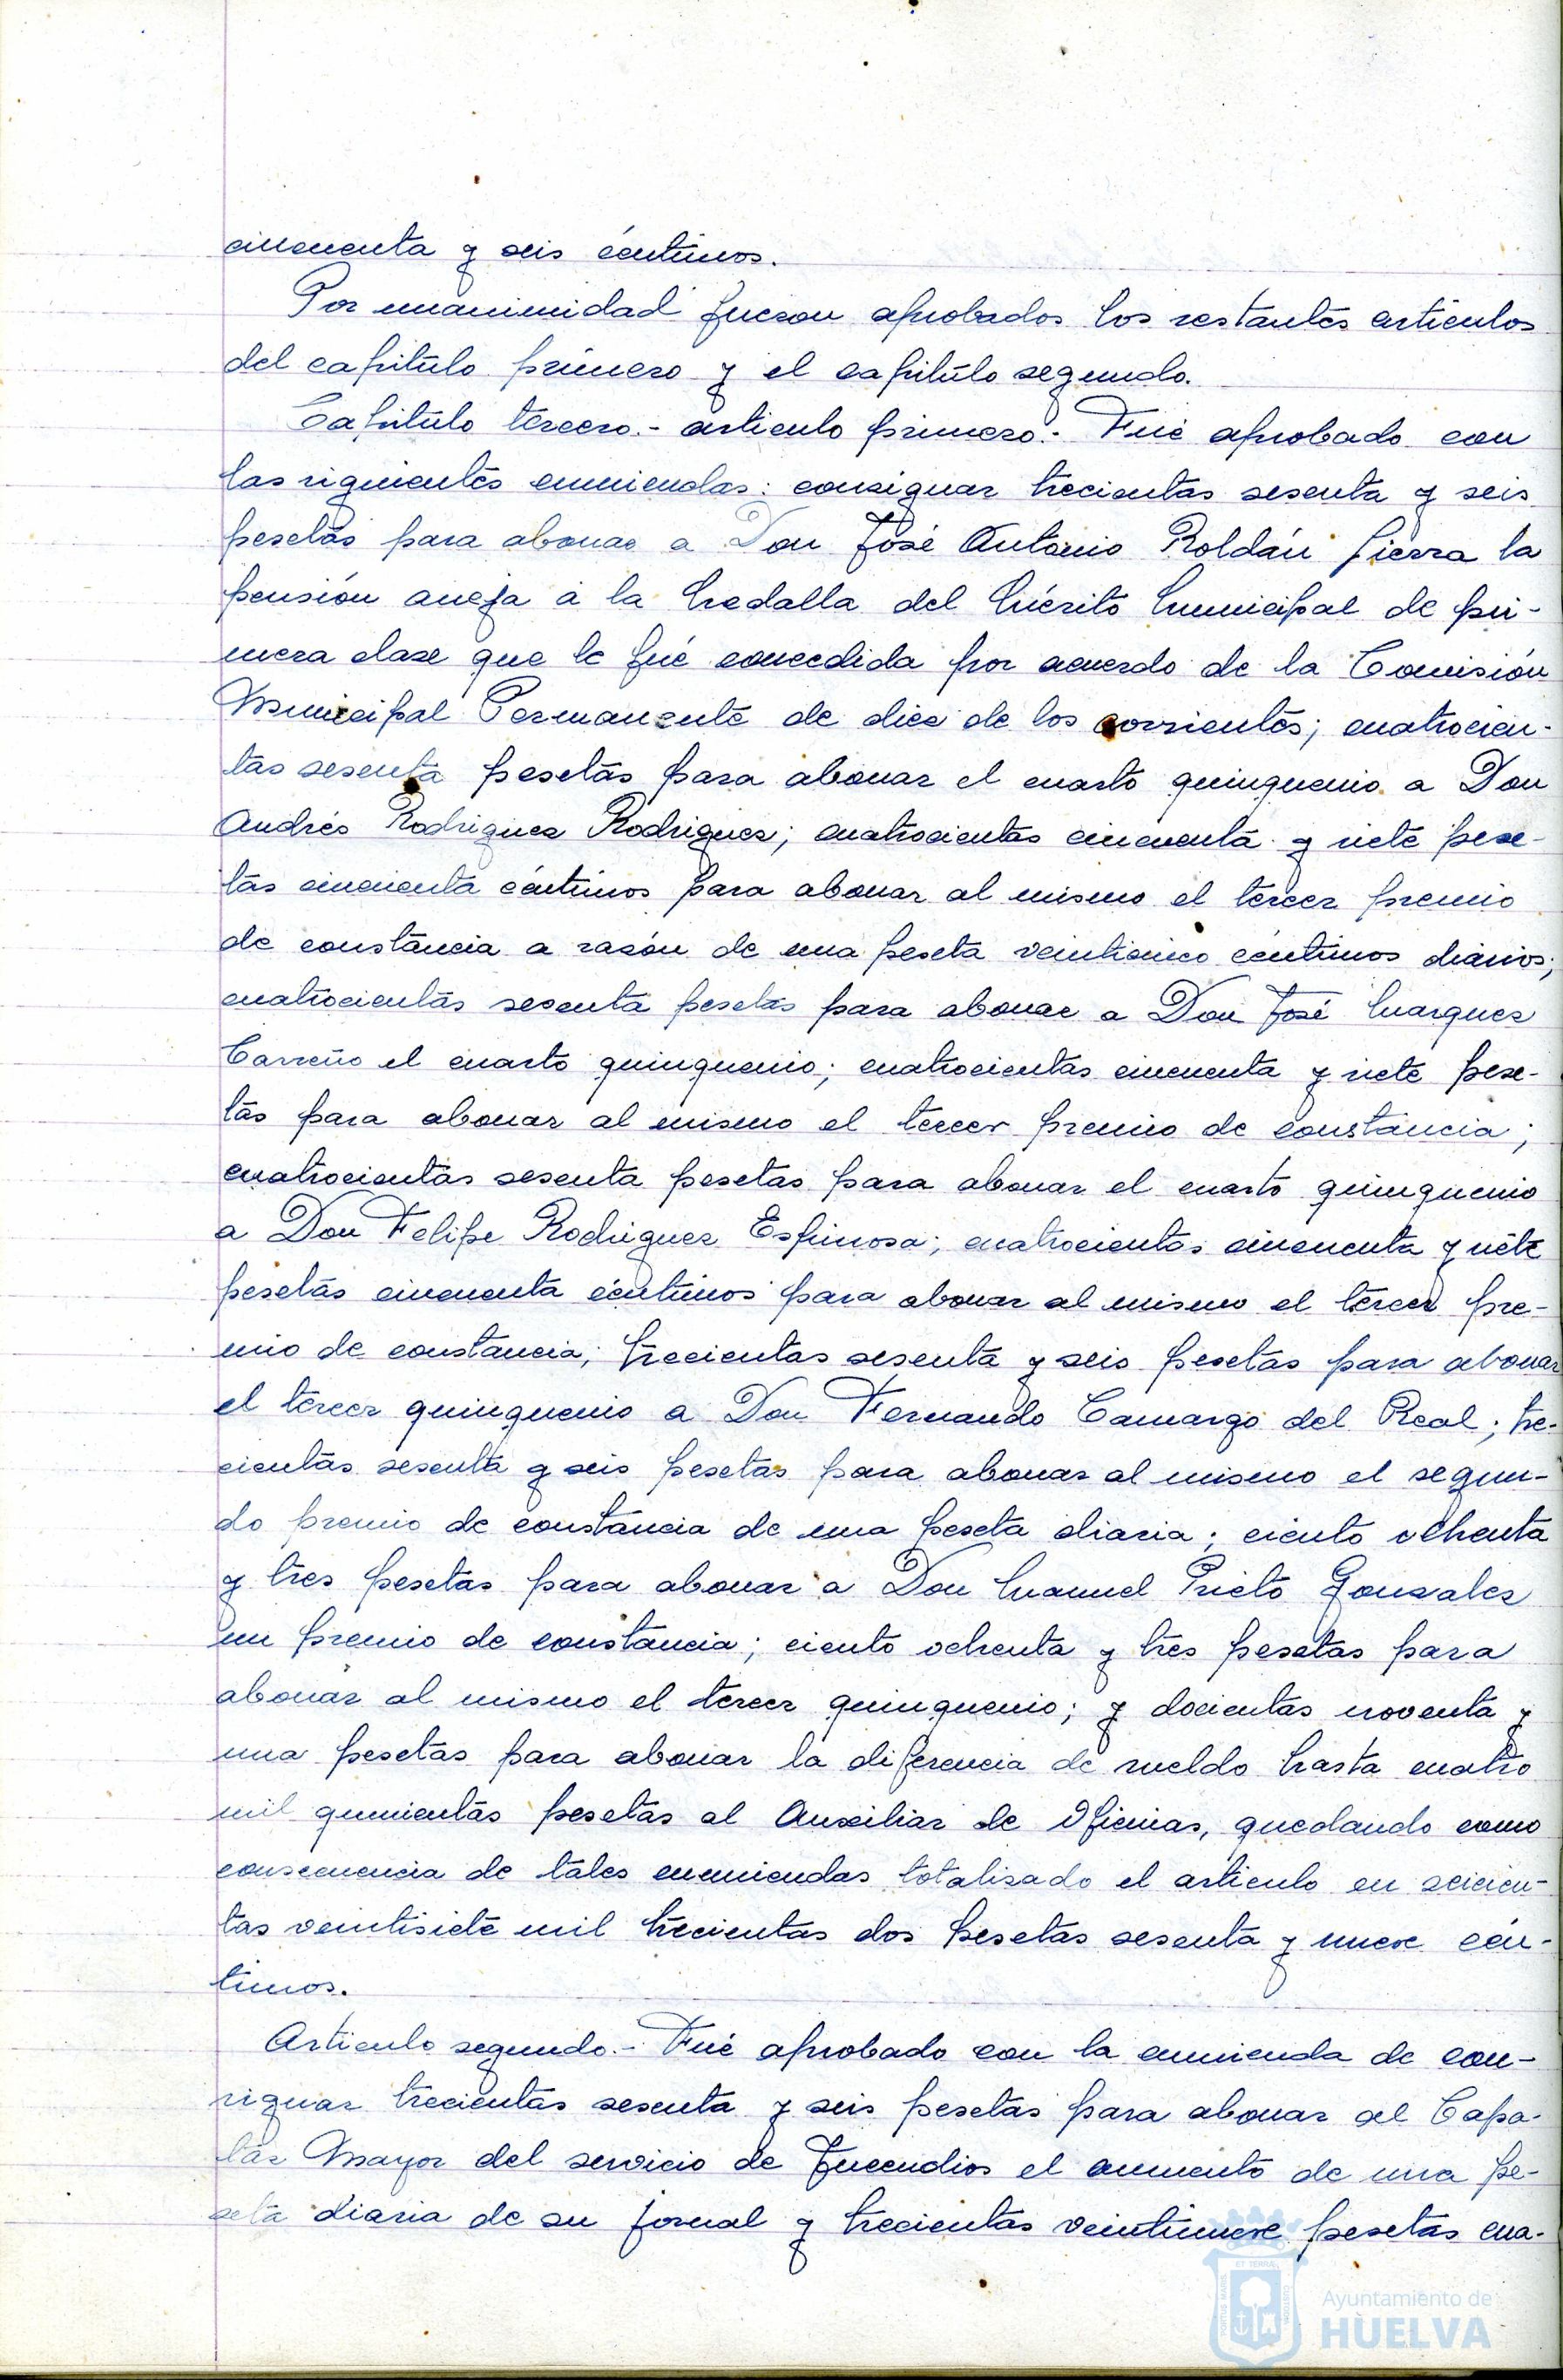 cincuenta y seis céntimos.
Por unanimidad fueron aprobados los restantes articulos
del capítulo primero y el capítulo segundo.
Capítulo tercero.- articulo primero.- Fué aprobado con
las siguientes enmiendas: consignar trecientas sesenta y seis
pesetas para abonar a Don José Antonio Roldán Sierra la
pensión aneja a la Medalla del Mérito Municipal de pri-
mera clase que le fué concedida por acuerdo de la Comisión
Municipal Permanente de diez de los corrientes; cuatrocien-
tas sesenta pesetas para abonar el cuarto quinquenio a Don
Andrés Rodriguez Rodriguez; cuatrocientas cincuenta y siete pese-
tas cincuenta céntimos para abonar al mismo el tercer premio
de constancia a razón de una peseta veinticinco céntimos diarios;
cuatrocientas sesenta pesetas para abonar a Don José Marquez
Carreño el cuarto quinquenio; cuatrocientas cincuenta y siete pese-
tas para abonar al mismo el tercer premio de constancia;
cuatrocientas sesenta pesetas para abonar el cuarto quinquenio
a Don Felipe Rodriguez Espinosa; cuatrocientas cincuenta y siete
pesetas cincuenta céntimos para abonar al mismo el tercer pre-
mio de constancia; trecientas sesenta y seis pesetas para abonar
el tercer quinquenio a Don Fernando Camargo del Real; tre-
cientas sesenta y seis pesetas para abonar al mismo el segun-
do premio de constancia de una peseta diaria; ciento ochenta
y tres pesetas para abonar a Don Manuel Prieto Gonzalez
un premio de constancia; ciento ochenta y tres pesetas para
abonar al mismo el tercer quinquenio; y docientas noventa y
una pesetas para abonar la diferencia de sueldo hasta cuatro
mil quinientas pesetas al Auxiliar de Oficinas, quedando como
consecuencia de tales enmiendas totalizado el articulo en seicien-
tas veintisiete mil trecientas dos pesetas sesenta y nueve cén-
timos.
Articulo segundo.- Fué aprobado con la enmienda de con-
signar trecientas sesenta y seis pesetas para abonar al Capa-
taz Mayor del servicio de Incendios el aumento de una pe-
seta diaria de su jornal y trecientas veintinueve pesetas cua-
Ayuntamiento de
HUELVA